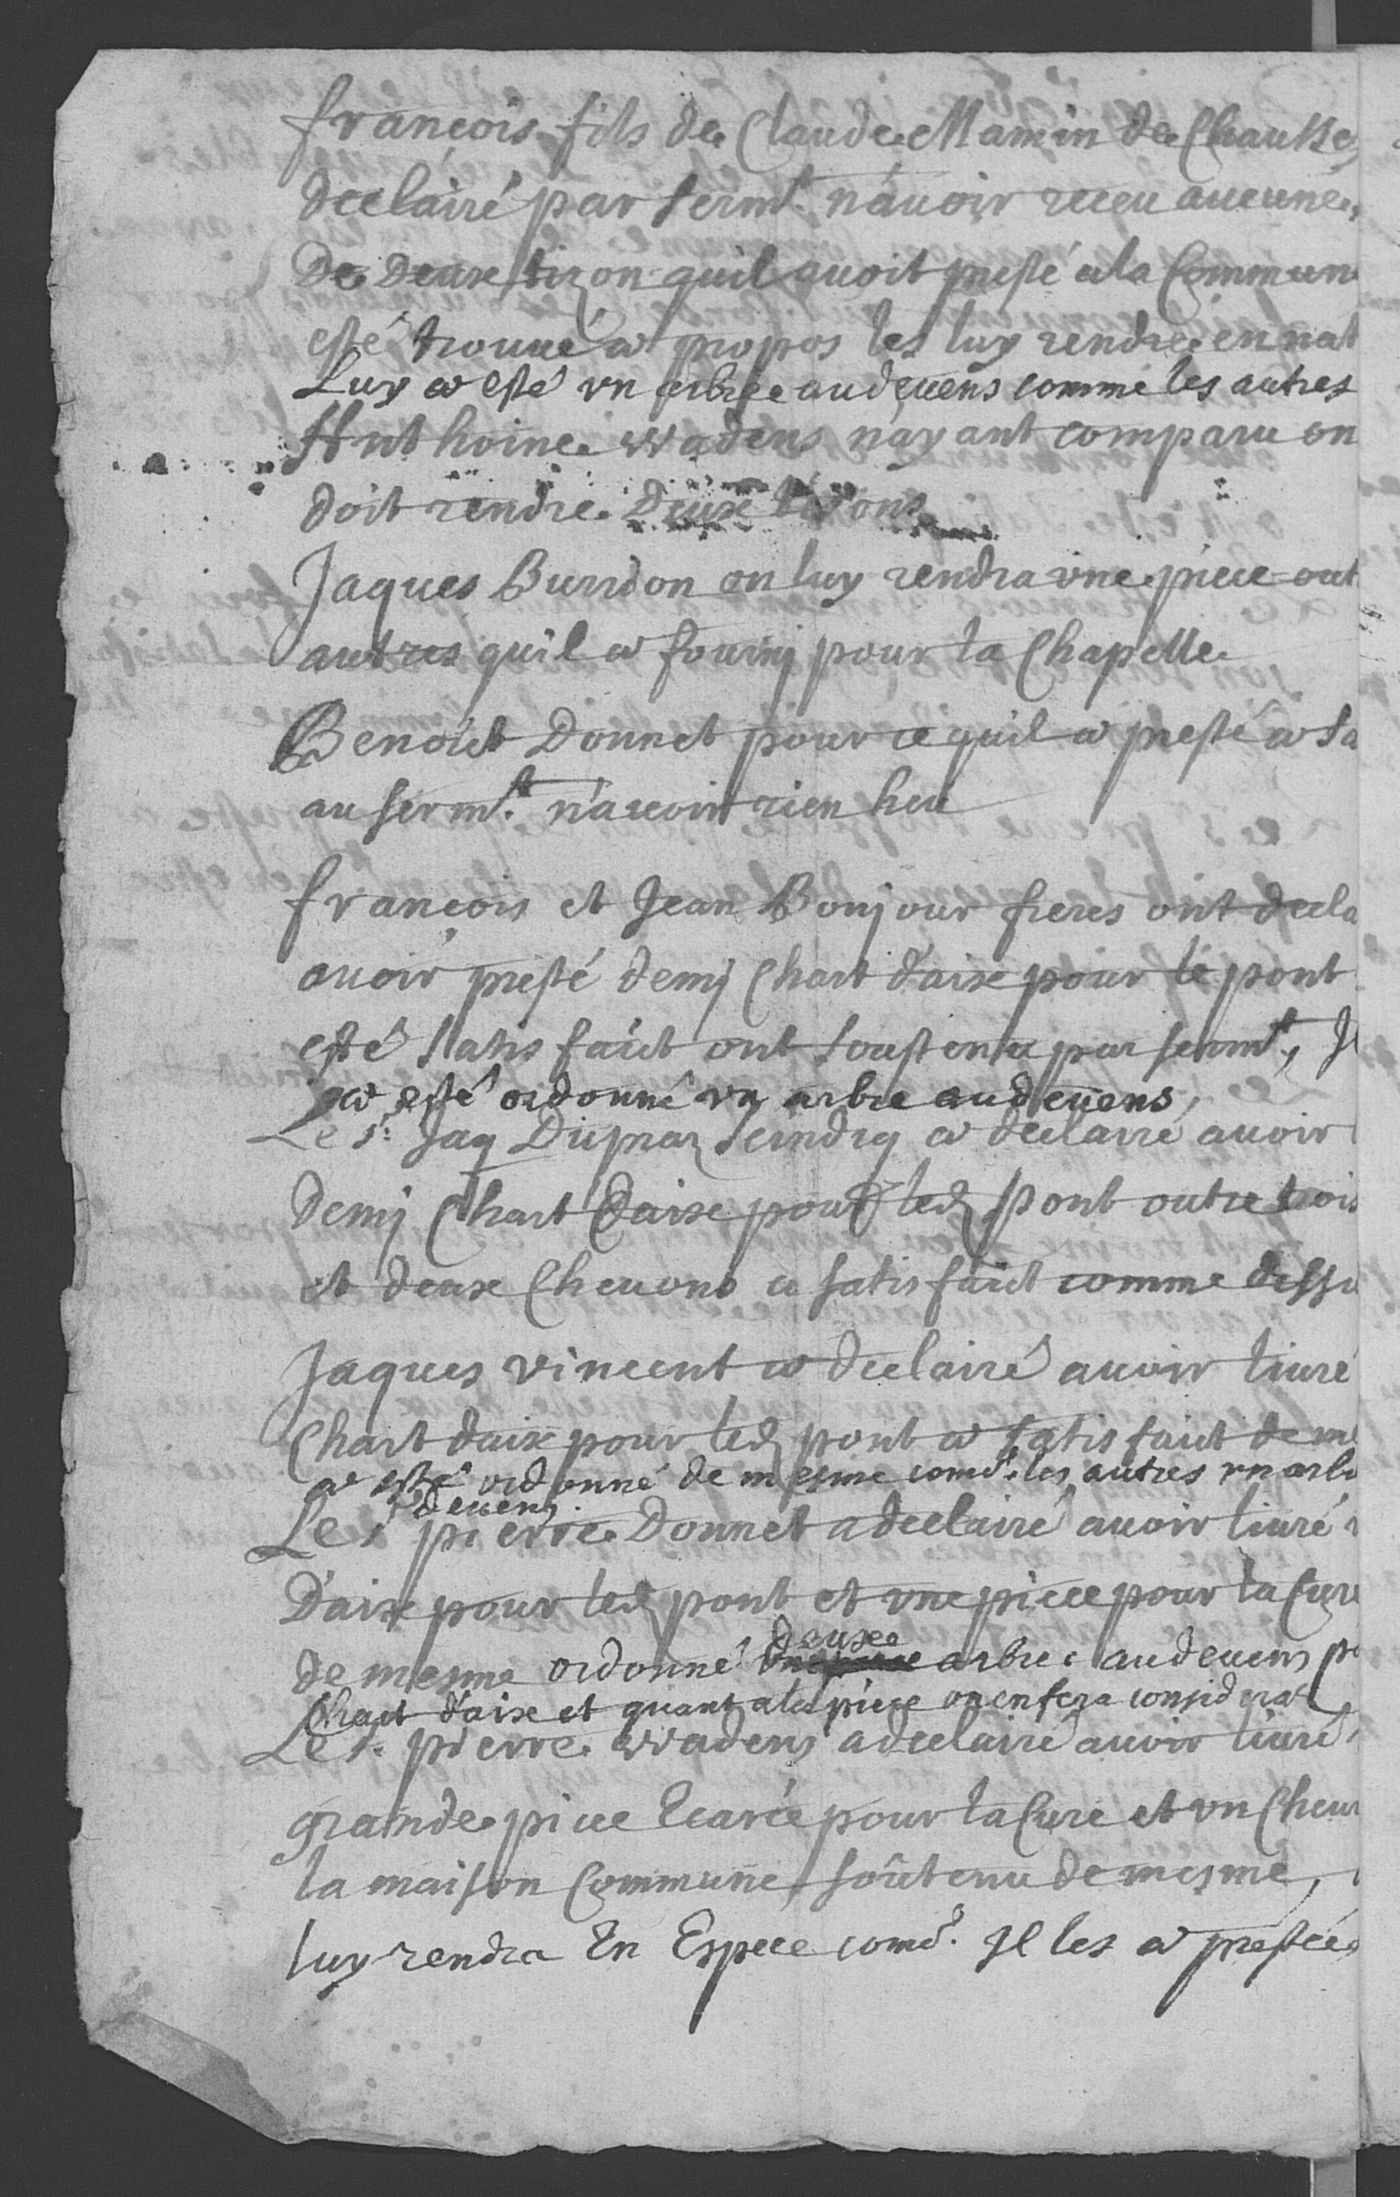 francois fils de Claude Mamin de Chausse
declairé par serm.t n'auoir receu aucune
De deux tizon quil auoit presté a la Commun
esté trouué a propos les luy rendre en nat
Luy a esté vn arbre au deuens comme les autres
Anthoine wadens nayant comparu on
doit rendre deux tizons
Jaques Burdon on luy rendra vne piece out
autres quil a fourny pour la Chapelle
Benoict Donnet pour ce quil a presté a sa
au serm.t n'auoir rien heu
françois et Jean Bonjour freres ont decla
auoir presté demj Chart d'aix pour le pont
esté satisfaict ont soustenu par serm.t, Jl
a esté ordonné vn arbre au deuens,
Le s.r Jaq Dupraz scindiq a declairé auoir
demj Chart d'aix pour led pont outre trois
et deux Cheurons a satisfaict comme dessu
Jaques vincent a declairé auoir liuré
Chart daix pour led pont a satisfaict de me
a esté ordonné de mesme come les autres vn arb
deuens.
Le s.r pierre Donnet a declairé auoir liuré
D'aix pour led pont et vne piece pour la Cure
de mesme ordonné deux arbre au deuens p
Chart d'aix et quant a la piece on en fera considerat
Le s.r pierre wadens a declairé auoir liuré
grande piece Ecarée pour la Cure et vn Cheur
la maison Commune, soûtenu de mesme,
luy rendra En Espece come. Jl les a prestée